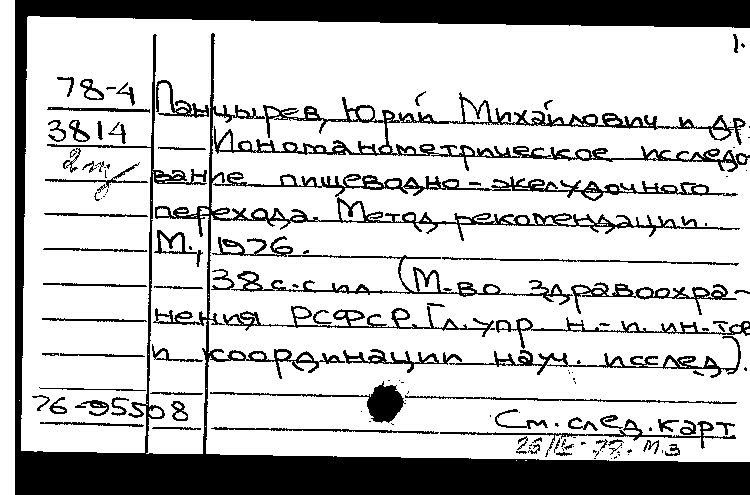 1.
78-4 Панцырев, Юрий Михайлович и др.
3814 Иономанометрическое исследо
2 вание пищеводно-желудочного
перехода. Метод. рекомендации.
М., 1976.
38 с. с ил. (М-во здравоохра-
нения РСФСР. Гл. упр. н.-и. ин-тов
и координации науч. исслед.).
76-95508
См. след. карт
26/IV-78. М.З